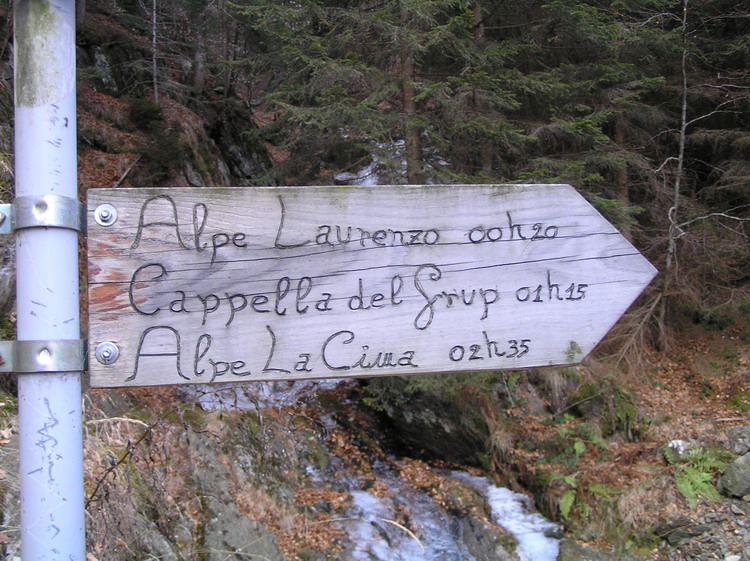 Alpe Laurenzo 00h20
Cappella del Grup 01h15
Alpe La Cima 02h35